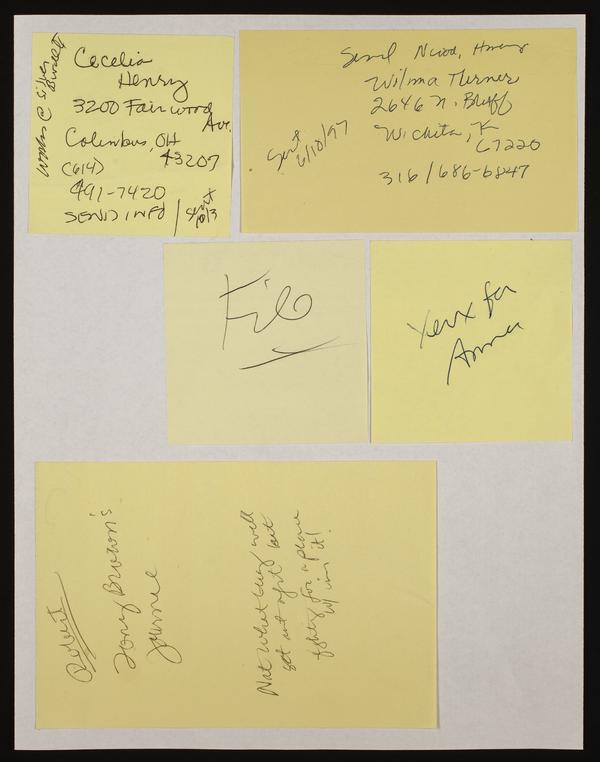 Works @ Silver Burdett
Cecelia
Henry
3200 Fairwood
Ave.
Columbus, OH
43207
(614)
491-7420
SEND INFO / Sent
10/3
Send
Wilma Turner
2646 N. Bluff
Wichita, K
67220
316/686-6847
Sent
6/10/97
File
Xerox for
Anna
Robert
Tony Brown's
Journal
Not what they will
get out of it but
for a place
w/in it!